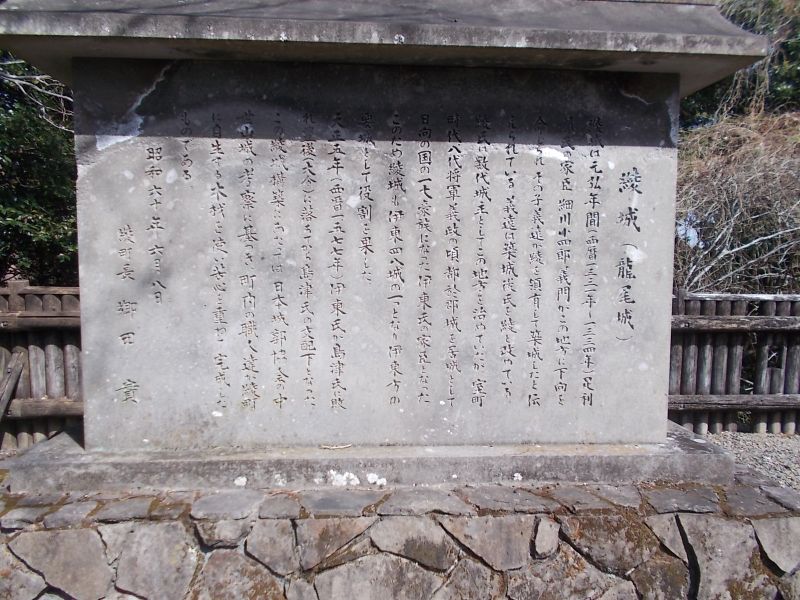 綾城(龍尾城)
綾城は元弘年間(西暦一三三一年~一三三四年)足利
の家臣 細川小四郎義門がこの地方に下向を
命じられ その子義遠が綾を領有して築城したと伝
えられている 義遠は築城後氏を綾と改めている
綾氏は数代城主としてこの地方を治めていたが 室町
時代八代将軍義政の頃都於郡城を居城として
日向の国の一大豪族になった伊東氏の家臣となった
このため綾城も伊東四八城の一つとなり伊東方の
要城として役割を果した
天正五年(西暦一五七七年)伊東氏が島津氏に敗
れ豊後(大分)に落ちのび島津氏の支配下となった
この綾城構築にあたっては 日本城郭協会の中
世山城の考察に基づき 町内の職人達が綾町
に自生する木材を使い苦心を重ねて完成した
ものである
昭和六十年六月八日
綾町長 郷田 實